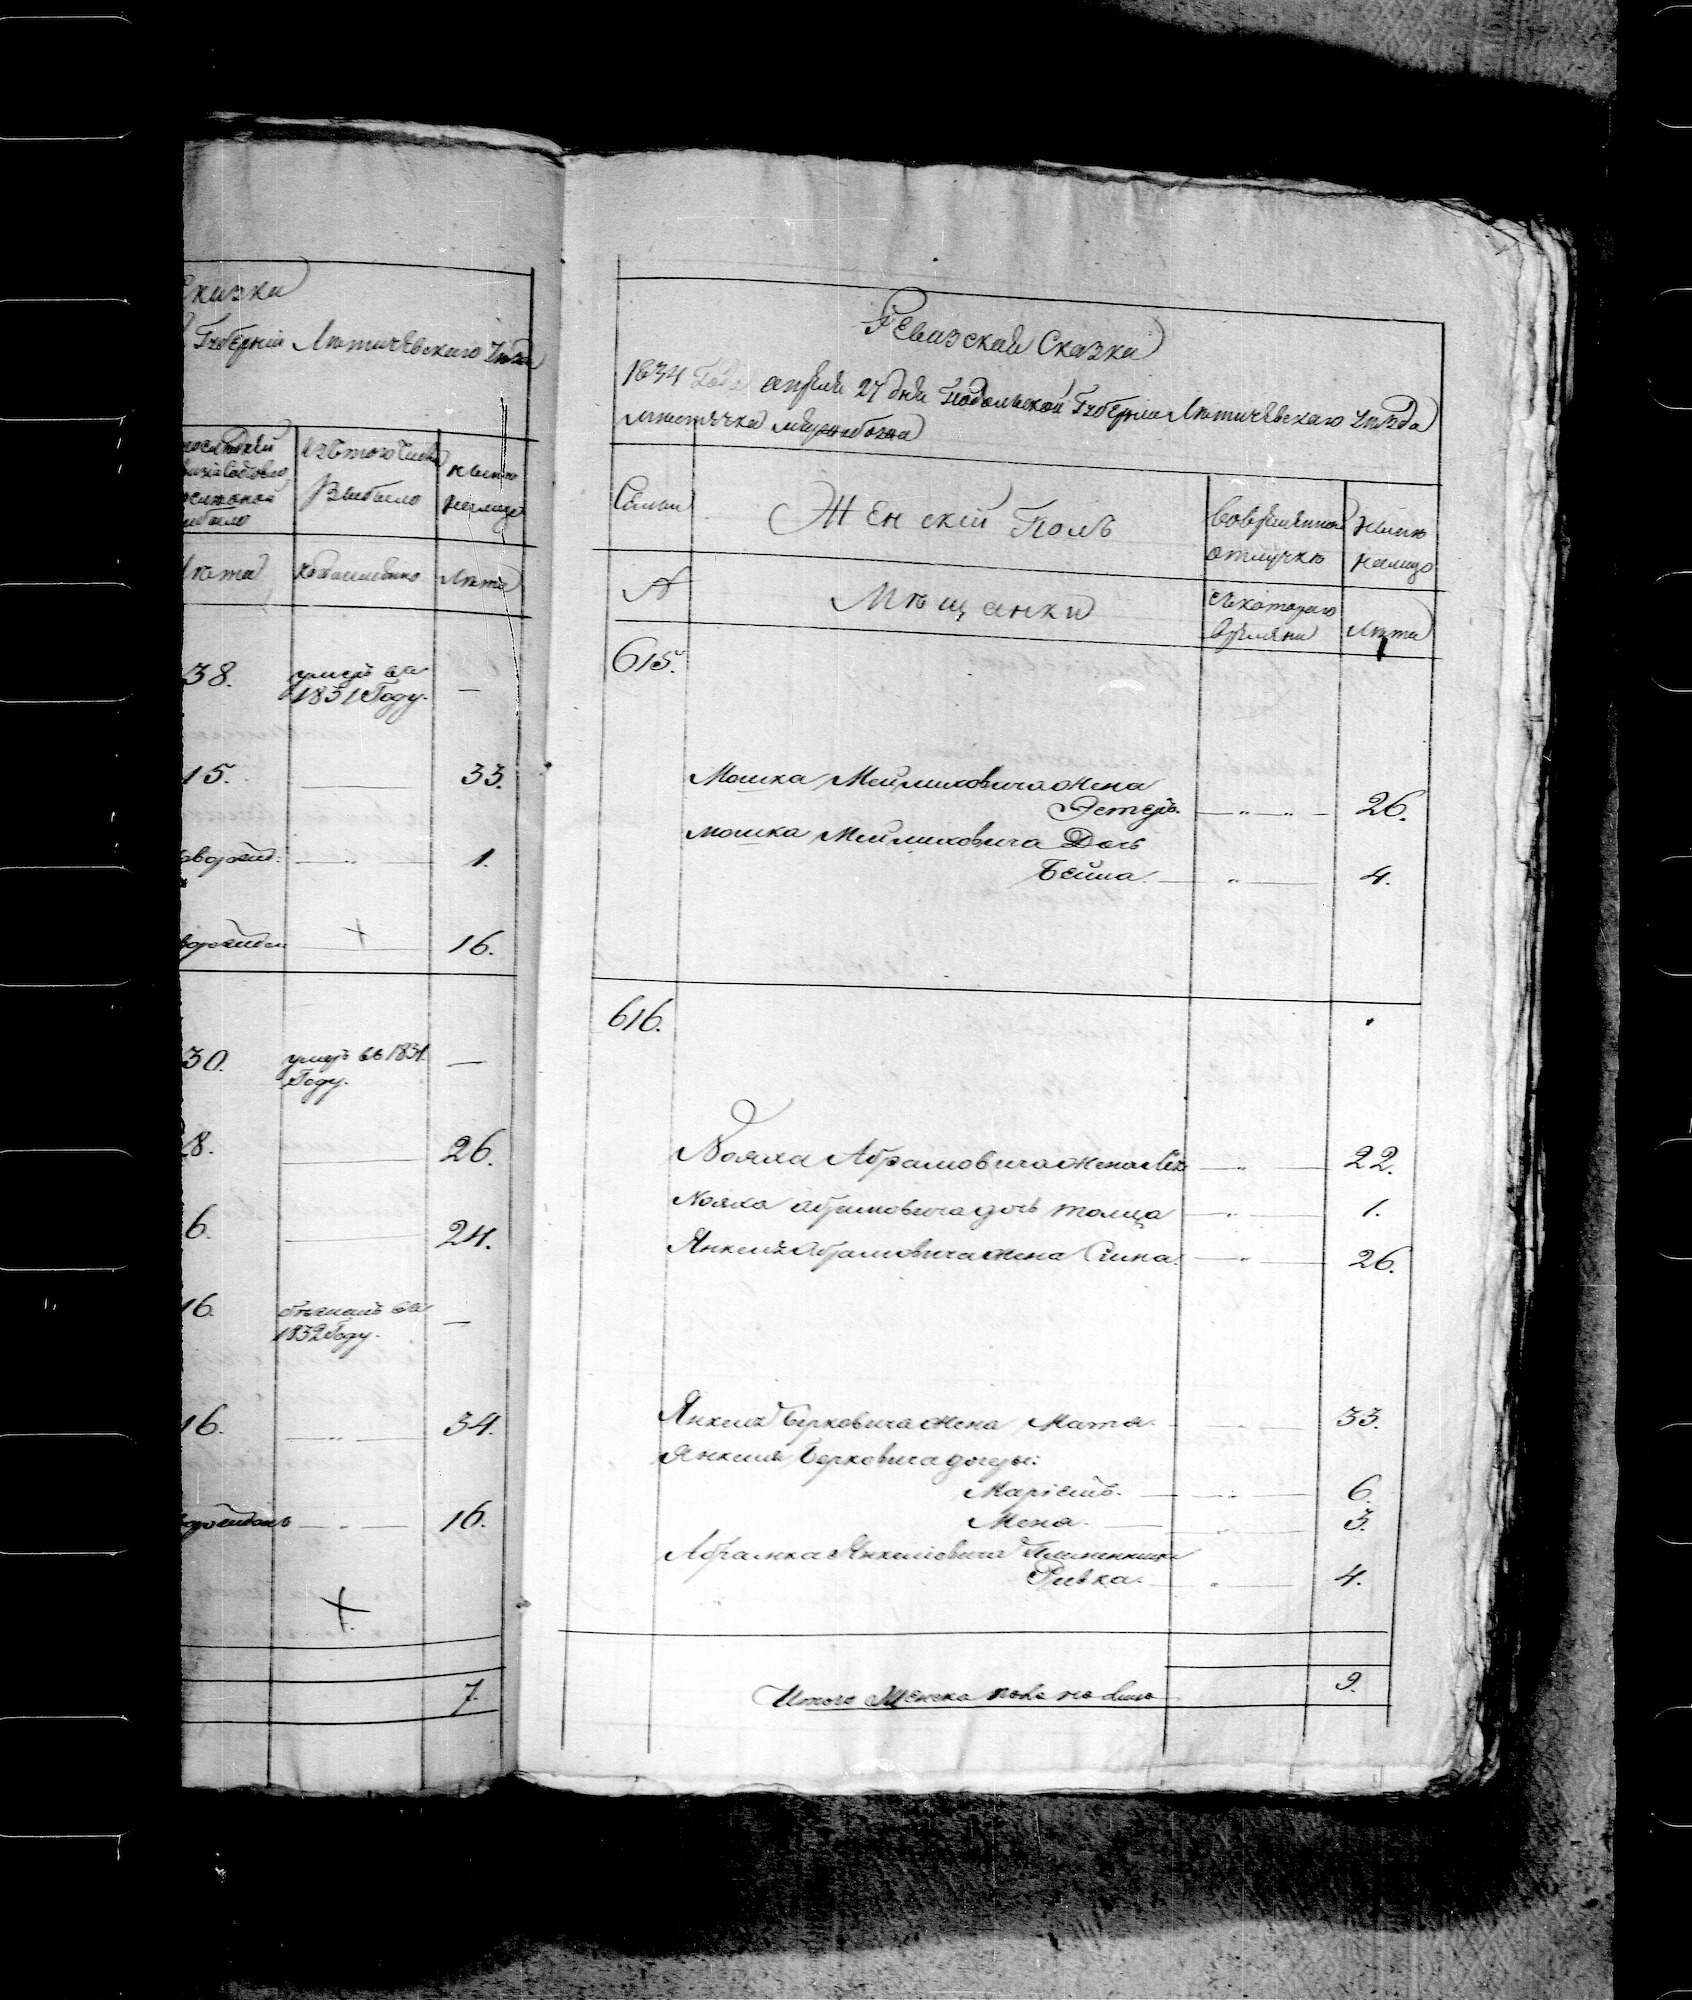 Сказка
Губерніи Летичевскаго уѣзда
изъ того числа
Выбыло
ныне
налицо
Лѣта
когда именно
Лѣта
38.
умеръ въ
1831 Году.
—
15.
33.
1.
16.
30.
умеръ въ 1831.
Году.
—
28.
26.
6.
24.
16.
въ
1832 Году.
—
16.
34.
16.
7.
Ревизская Сказка
1834 Года апреля 27 дня Подольской Губерніи Летичевскаго уѣзда
местечка Меджибожа
Семьи
Женскій Полъ
Вовременной
отлучке
Ныне
налицо
№
Мещанки
съ котораго
времяни
Лѣта
615.
Мошка Меилиховича жена
Эстеръ.
26.
Мошка Меилиховича Дочь
Бейла.
4.
616.
Нояха Абрамовича жена
22.
Нояха абрамовича дочь
1.
Янкеля Абрамовича жена
26.
Янкеля Берковича жена Мата.
33.
Янкеля Берковича дочеры:
Маріемъ.
6.
Мена.
3.
Абрамка Янкелевича
Ривка.
4.
Итого Женска пола на лицо
9.